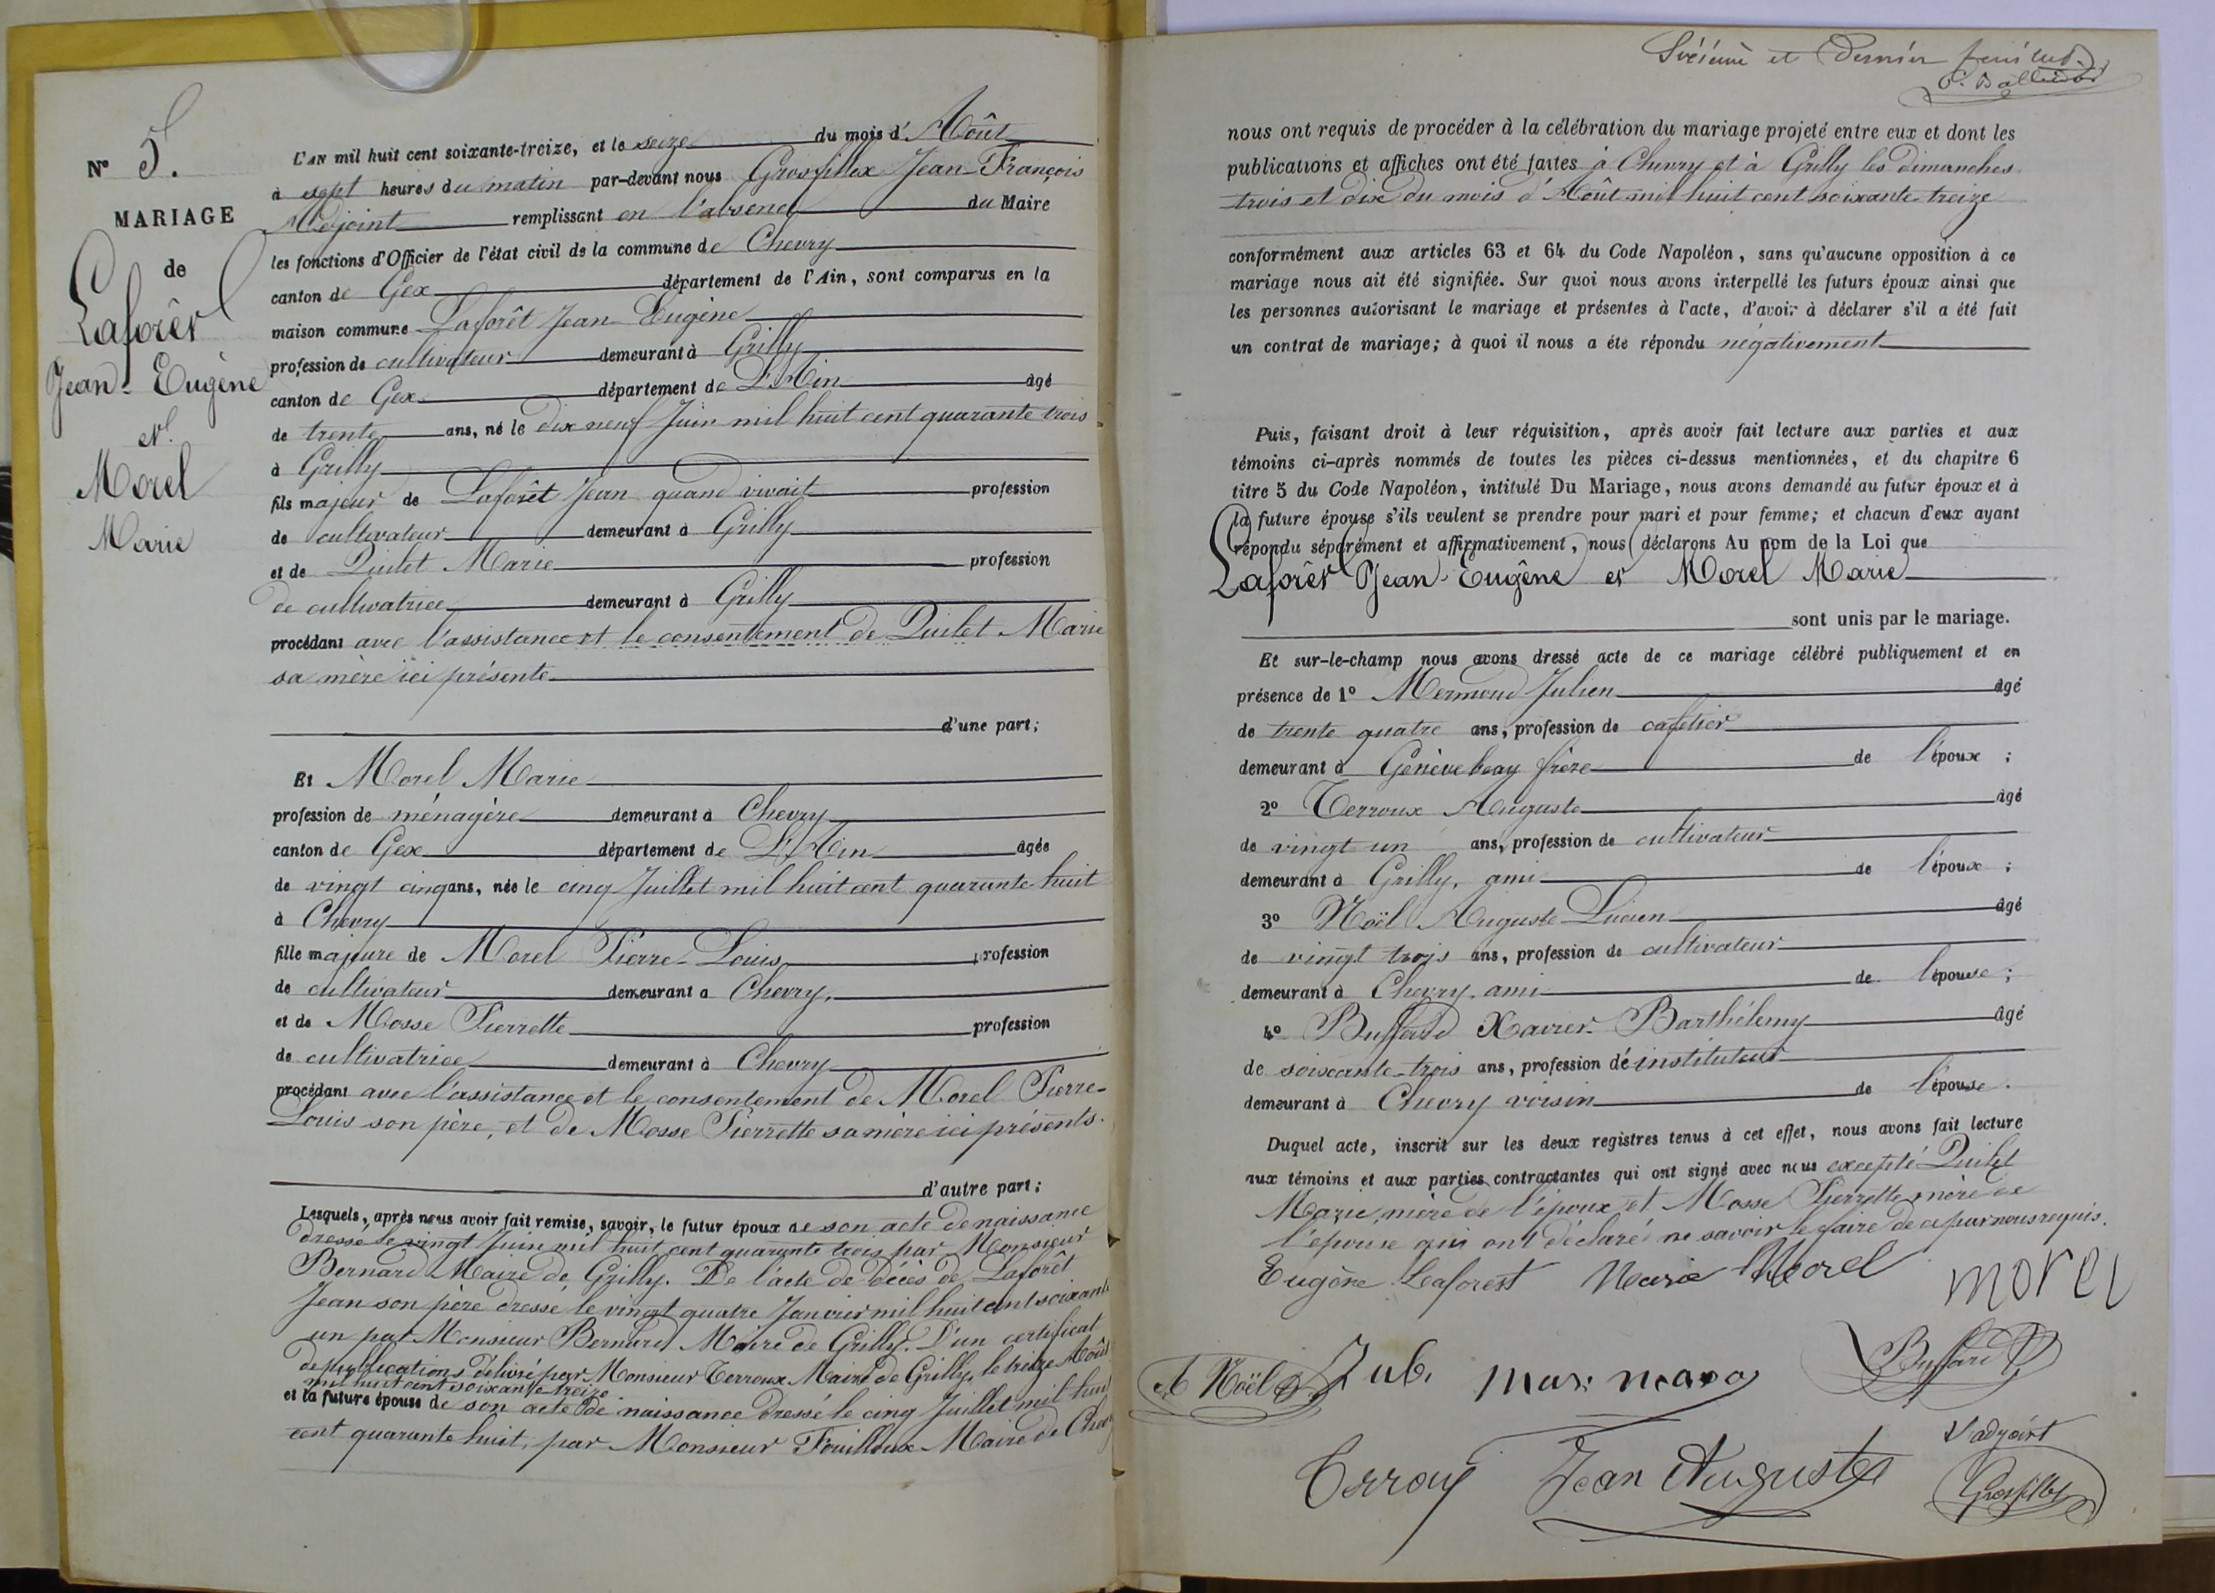 N° 5.
MARIAGE
de
Laforêt
Jean-Eugène
et
Morel
Marie
L'AN mil huit cent soixante-treize, et le seize du mois d'Août
à sept heures du matin par-devant nous Grosfillex Jean-François
Adjoint remplissant en l'absence du Maire
les fonctions d'Officier de l'état civil de la commune de Chevry
canton de Gex département de l'Ain, sont comparus en la
maison commune Laforêt Jean-Eugène
profession de cultivateur demeurant à Grilly
canton de Gex département de L'Ain âgé
de trente ans, né le dix neuf Juin mil huit cent quarante trois
à Grilly
fils majeur de Laforêt Jean quand vivait profession
de cultivateur demeurant à Grilly
et de Quilet Marie profession
de cultivatrice demeurant à Grilly
procédant avec l'assistance et le consentement de Quilet Marie
sa mère ici présente
d'une part;
Et Morel Marie
profession de ménagère demeurant à Chevry
canton de Gex département de L'Ain âgée
de vingt cinq ans, née le cinq Juillet mil huit cent quarante huit
à Chevry
fille majeure de Morel Pierre-Louis profession
de cultivateur demeurant à Chevry.
et de Mosse Pierrette profession
de cultivatrice demeurant à Chevry
procédant avec l'assistance et le consentement de Morel Pierre-
Louis son père, et de Mosse Pierrette sa mère ici présents.
d'autre part;
Lesquels, après nous avoir fait remise, savoir, le futur époux de son acte de naissance
dressé le vingt Juin mil huit cent quarante trois par Monsieur
Bernard Maire de Grilly. De l'acte de décès de Laforêt
Jean son père dressé le vingt quatre Janvier mil huit cent soixante
un par Monsieur Bernard Maire de Grilly. D'un certificat
de publications délivré par Monsieur Terroux Maire de Grilly, le treize Août
mil huit cent soixante treize.
et la future épouse de son acte de naissance dressé le cinq Juillet mil huit
cent quarante huit, par Monsieur Fouilloux Maire de
et Dernier feuillet.
nous ont requis de procéder à la célébration du mariage projeté entre eux et dont les
publications et affiches ont été faites à Chevry et à Grilly les dimanches
trois et dix du mois d'Août mil huit cent soixante-treize
conformément aux articles 63 et 64 du Code Napoléon, sans qu'aucune opposition à ce
mariage nous ait été signifiée. Sur quoi nous avons interpellé les futurs époux ainsi que
les personnes autorisant le mariage et présentes à l'acte, d'avoir à déclarer s'il a été fait
un contrat de mariage; à quoi il nous a été répondu négativement
Puis, faisant droit à leur réquisition, après avoir fait lecture aux parties et aux
témoins ci-après nommés de toutes les pièces ci-dessus mentionnées, et du chapitre 6
titre 5 du Code Napoléon, intitulé Du Mariage, nous avons demandé au futur époux et à
la future épouse s'ils veulent se prendre pour mari et pour femme; et chacun d'eux ayant
répondu séparément et affirmativement, nous déclarons Au nom de la Loi que
Laforêt Jean-Eugène et Morel Marie
sont unis par le mariage.
Et sur-le-champ nous avons dressé acte de ce mariage célébré publiquement et en
présence de 1° Mermoud Julien âgé
de trente quatre ans, profession de cafetier
demeurant à Genève beau frère de l'époux;
2° Terroux Auguste âgé
de vingt un ans, profession de cultivateur
demeurant à Grilly, ami de l'époux;
3° Noël Auguste Lucien âgé
de vingt trois ans, profession de cultivateur
demeurant à Chevry. ami de l'épouse;
4° Buffard Xavier-Barthélemy âgé
de soixante-trois ans, profession d'instituteur
demeurant à Chevry voisin de l'épouse.
Duquel acte, inscrit sur les deux registres tenus à cet effet, nous avons fait lecture
aux témoins et aux parties contractantes qui ont signé avec nous excepté Quilet
Marie, mère de l'époux et Mosse Pierrette mère de
l'épouse qui ont déclaré ne savoir le faire de ce par nous requis.
Eugène Laforest Marie Morel morel
A Noël Jul. Buffard
Terroux Jean Auguste L'adjoint
Grosfillex